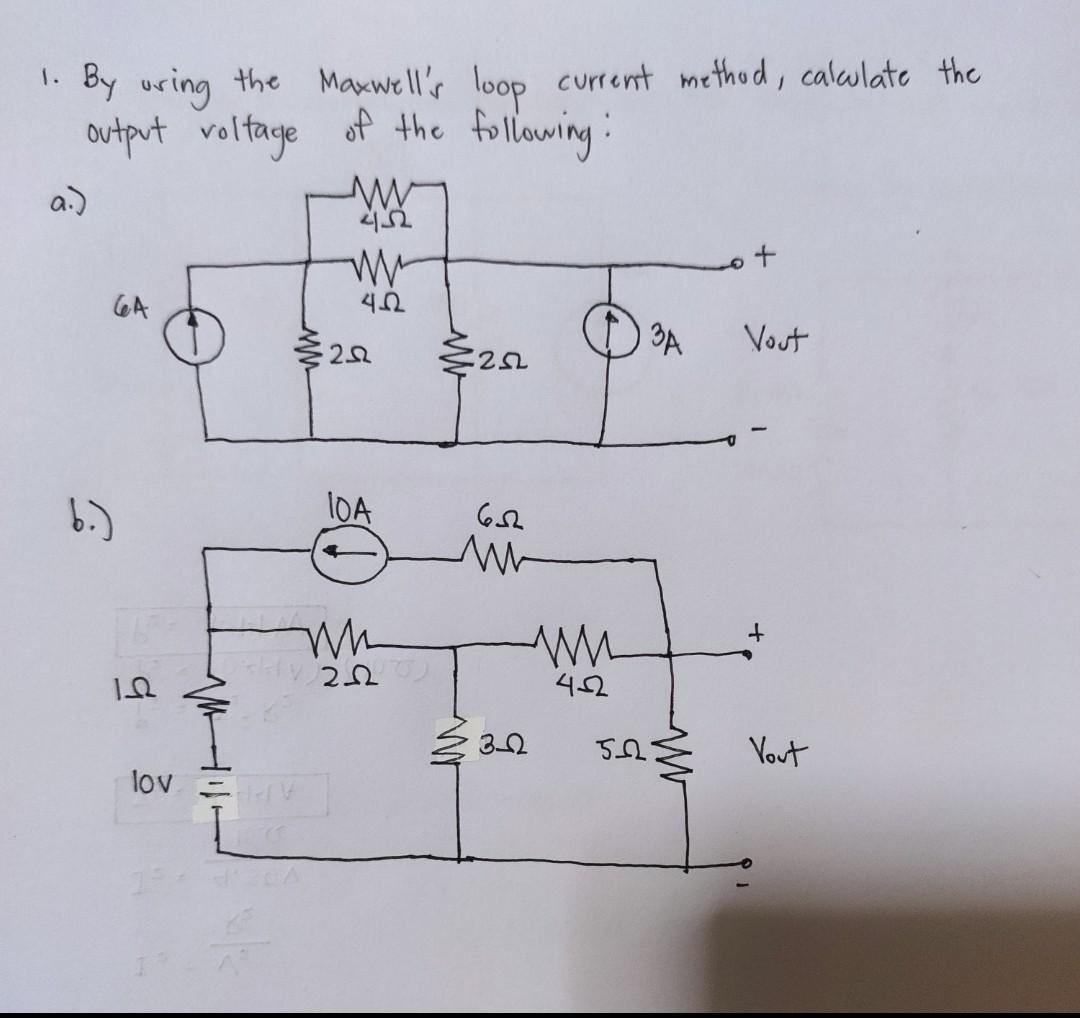 1. By using the Maxwell's loop current method, calculate the
output voltage of the following:
a.)
4Ω
4Ω
+
6A
2Ω
2Ω
3A
Vout
-
b.)
10A
6Ω
+
1Ω
2Ω
4Ω
3Ω
5Ω
Vout
10V
-